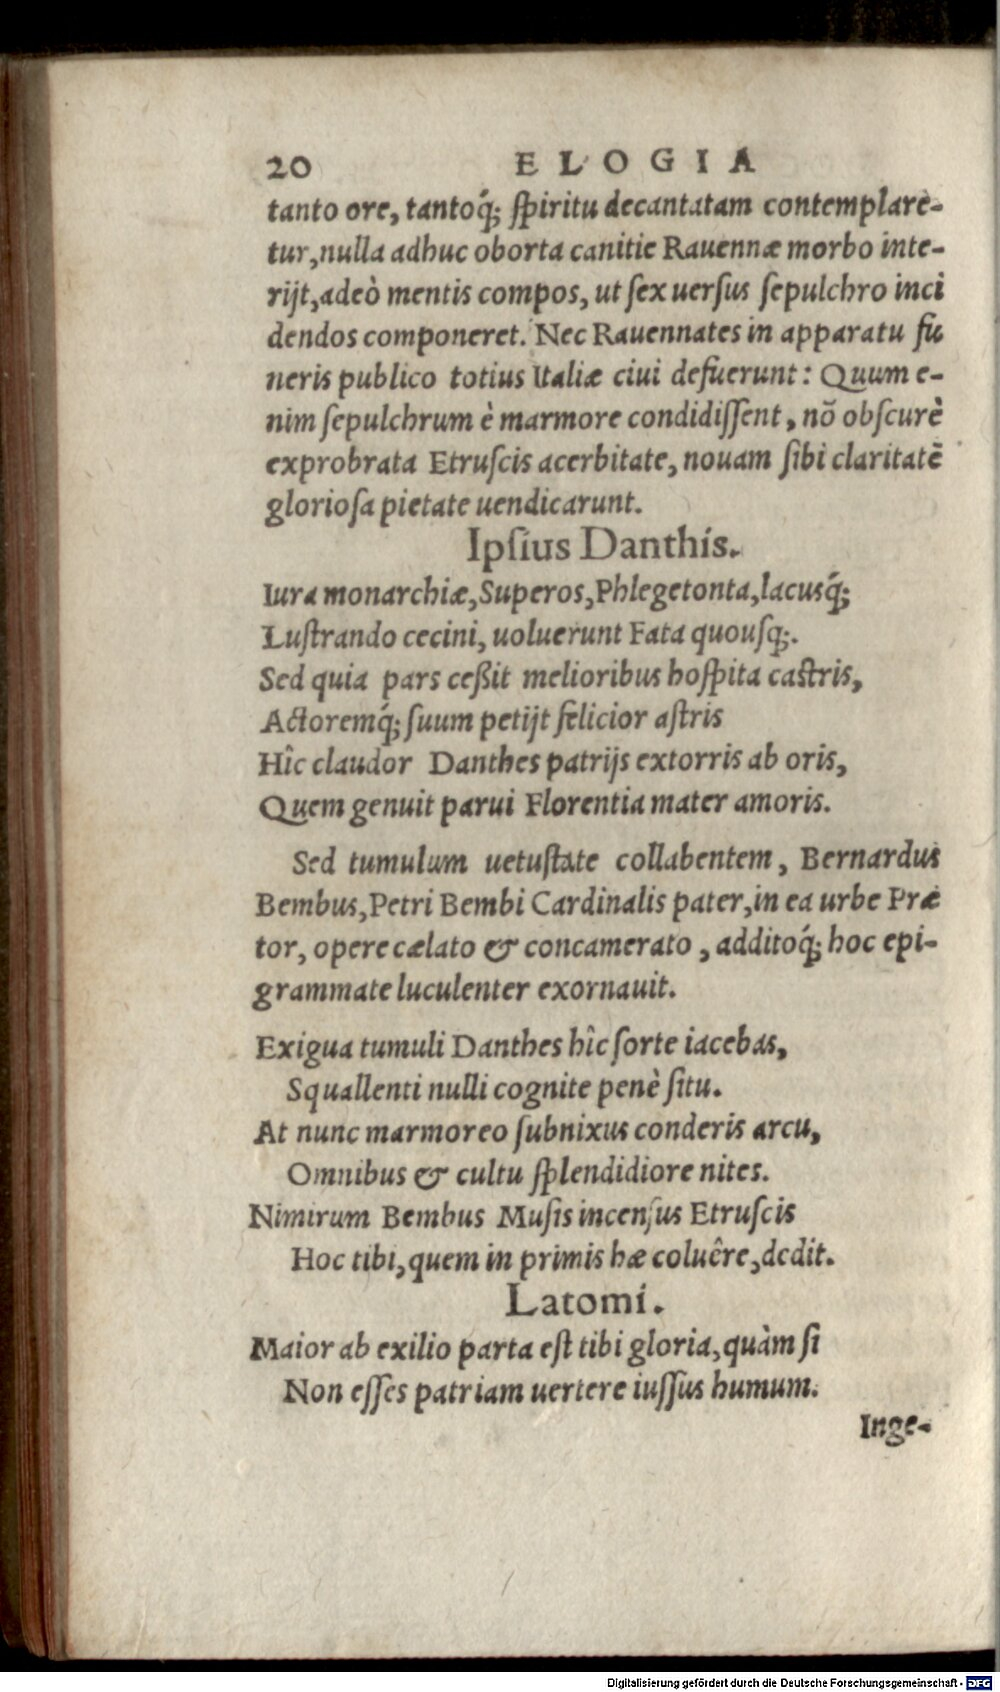 20 ELOGIA
tanto ore, tantoq́; ſpiritu decantatam contemplarē-
tur, nulla adhuc oborta canitie Rauennæ morbo inte-
rijt, adeò mentis compos, ut ſex uerſus ſepulchro inci
dendos componeret. Nec Rauennates in apparatu fu
neris publico totius Italiæ ciui defuerunt: Quum e-
nim ſepulchrum è marmore condidiſſent, nō obſcurè
exprobrata Etruſcis acerbitate, nouam ſibi claritatē
glorioſa pietate uendicarunt.
Ipſius Danthis.
Iura monarchiæ, Superos, Phlegetonta, lacusq́;
Luſtrando cecini, uoluerunt Fata quouſq;.
Sed quia pars ceßit melioribus hoſpita caſtris,
Actoremq́; ſuum petijt felicior aſtris
Hîc claudor Danthes patrijs extorris ab oris,
Quem genuit parui Florentia mater amoris.
Sed tumulum uetuſtate collabentem, Bernardus
Bembus, Petri Bembi Cardinalis pater, in ea urbe Præ
tor, opere cælato & concamerato, additoq́; hoc epi-
grammate luculenter exornauit.
Exigua tumuli Danthes hîc ſorte iacebas,
Squallenti nulli cognite penè ſitu.
At nunc marmoreo ſubnixus conderis arcu,
Omnibus & cultu ſplendidiore nites.
Nimirum Bembus Muſis incenſus Etruſcis
Hoc tibi, quem in primis hæ coluêre, dedit.
Latomi.
Maior ab exilio parta eſt tibi gloria, quàm ſi
Non eſſes patriam uertere iuſſus humum.
Inge-
Digitalisierung gefördert durch die Deutsche Forschungsgemeinschaft - DFG